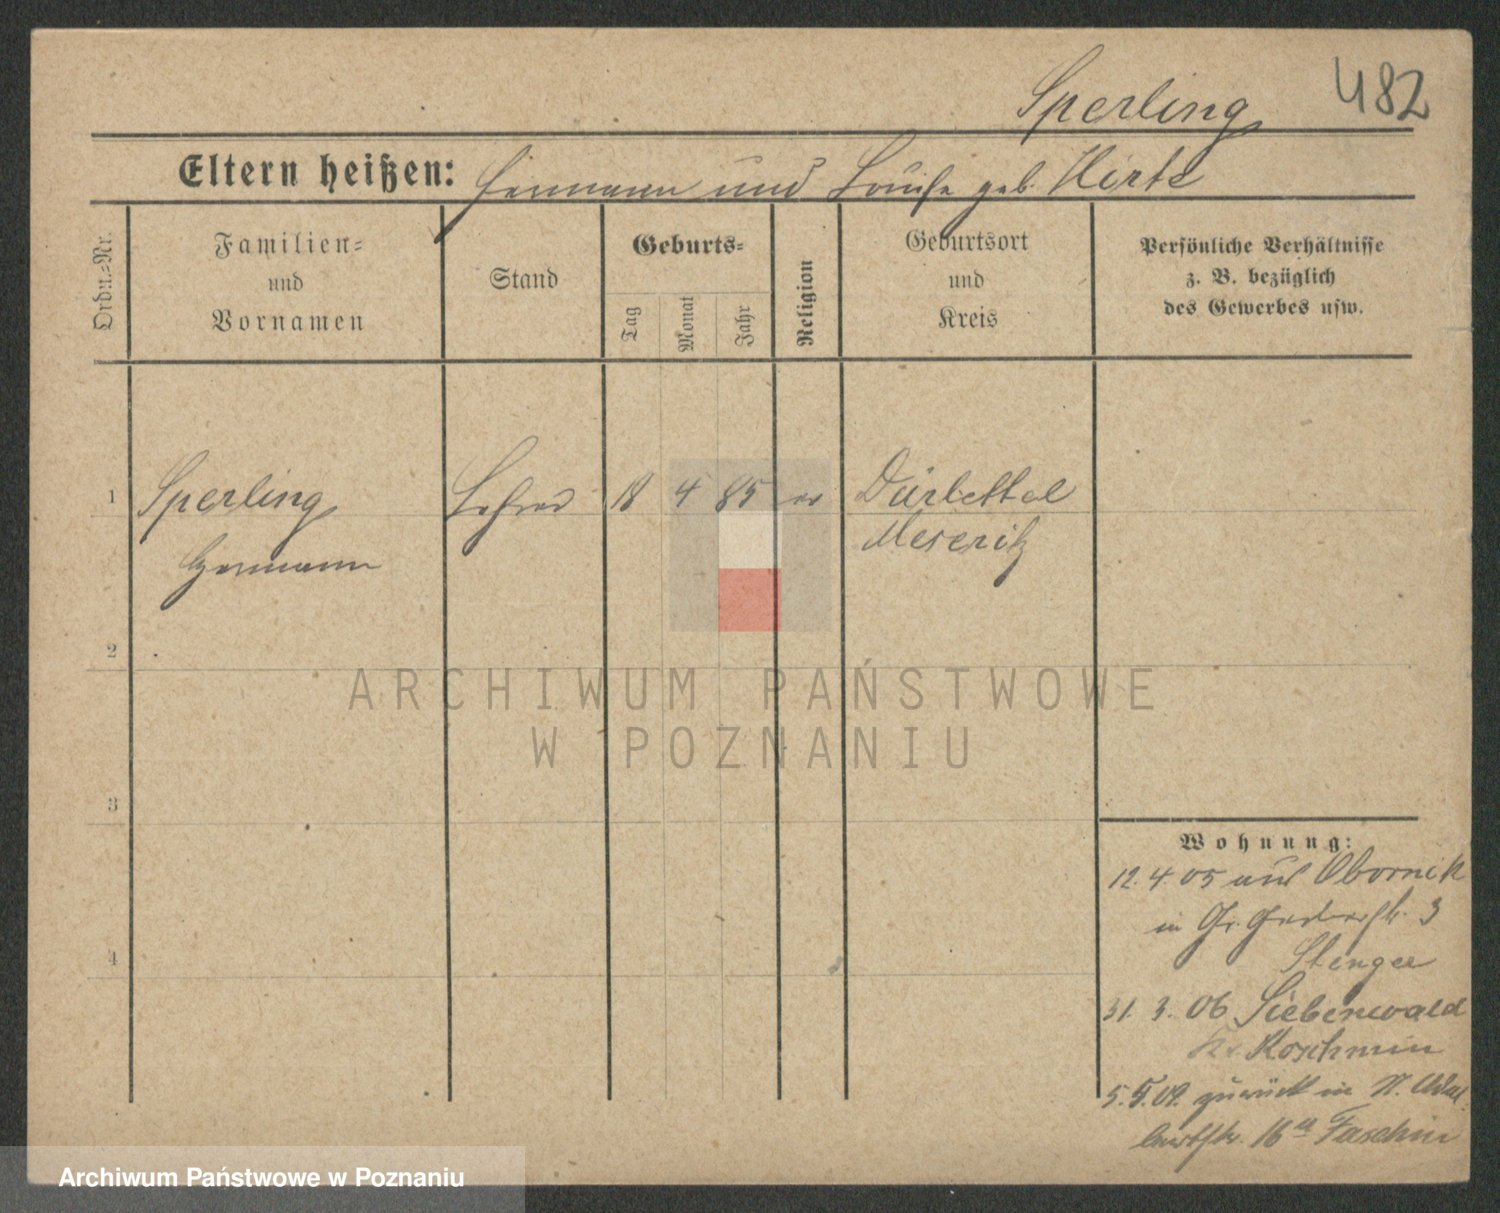 Sperling 482
Eltern heißen: Hermann und Louise geb. Hirte
Ordn.=Nr.
Familien=
und
Vornamen
Stand
Geburts=
Tag
Monat
Jahr
Religion
Geburtsort
und
Kreis
Persönliche Verhältnisse
z. B. bezüglich
des Gewerbes usw.
1 Sperling Lehrer 18 4 85 ev Dürlettel
Hermann Meseritz
2
3
4
ARCHIWUM PAŃSTWOWE
W POZNANIU
Wohnung:
12. 4. 05 aus Obornik
in Gr. 3
Stenger
31. 3. 06 Siebenwald
Kr. Koschmin
5. 5. 09. zurück in N.
16 a Faschin
Archiwum Państwowe w Poznaniu